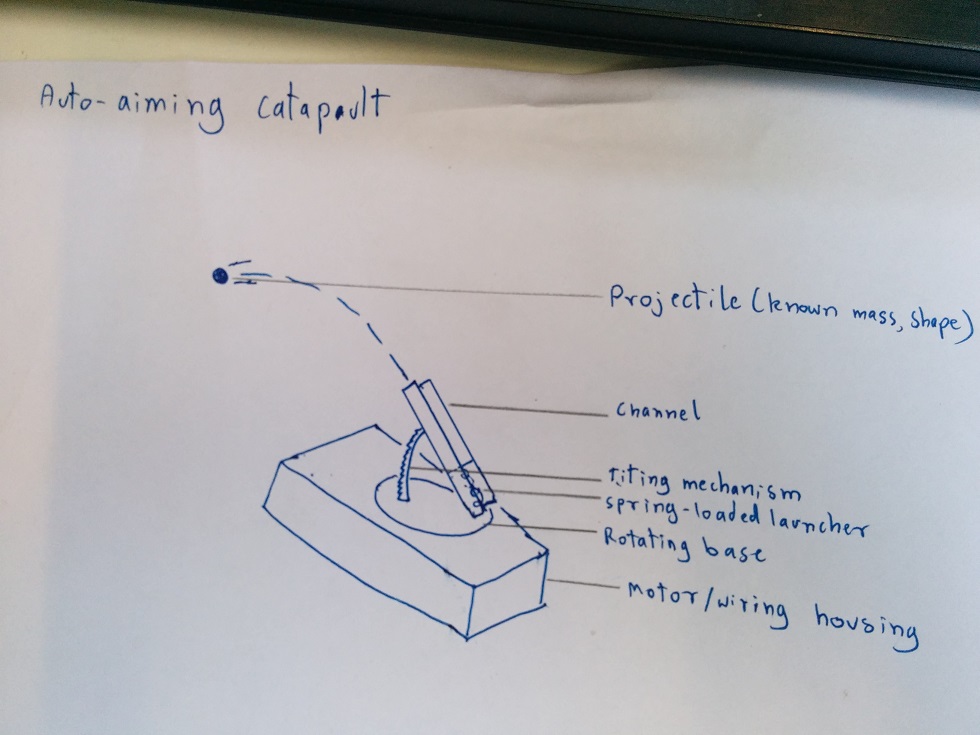 Auto-aiming catapault
Projectile (known mass, shape)
channel
Tilting mechanism
spring-loaded launcher
Rotating base
Motor/wiring housing